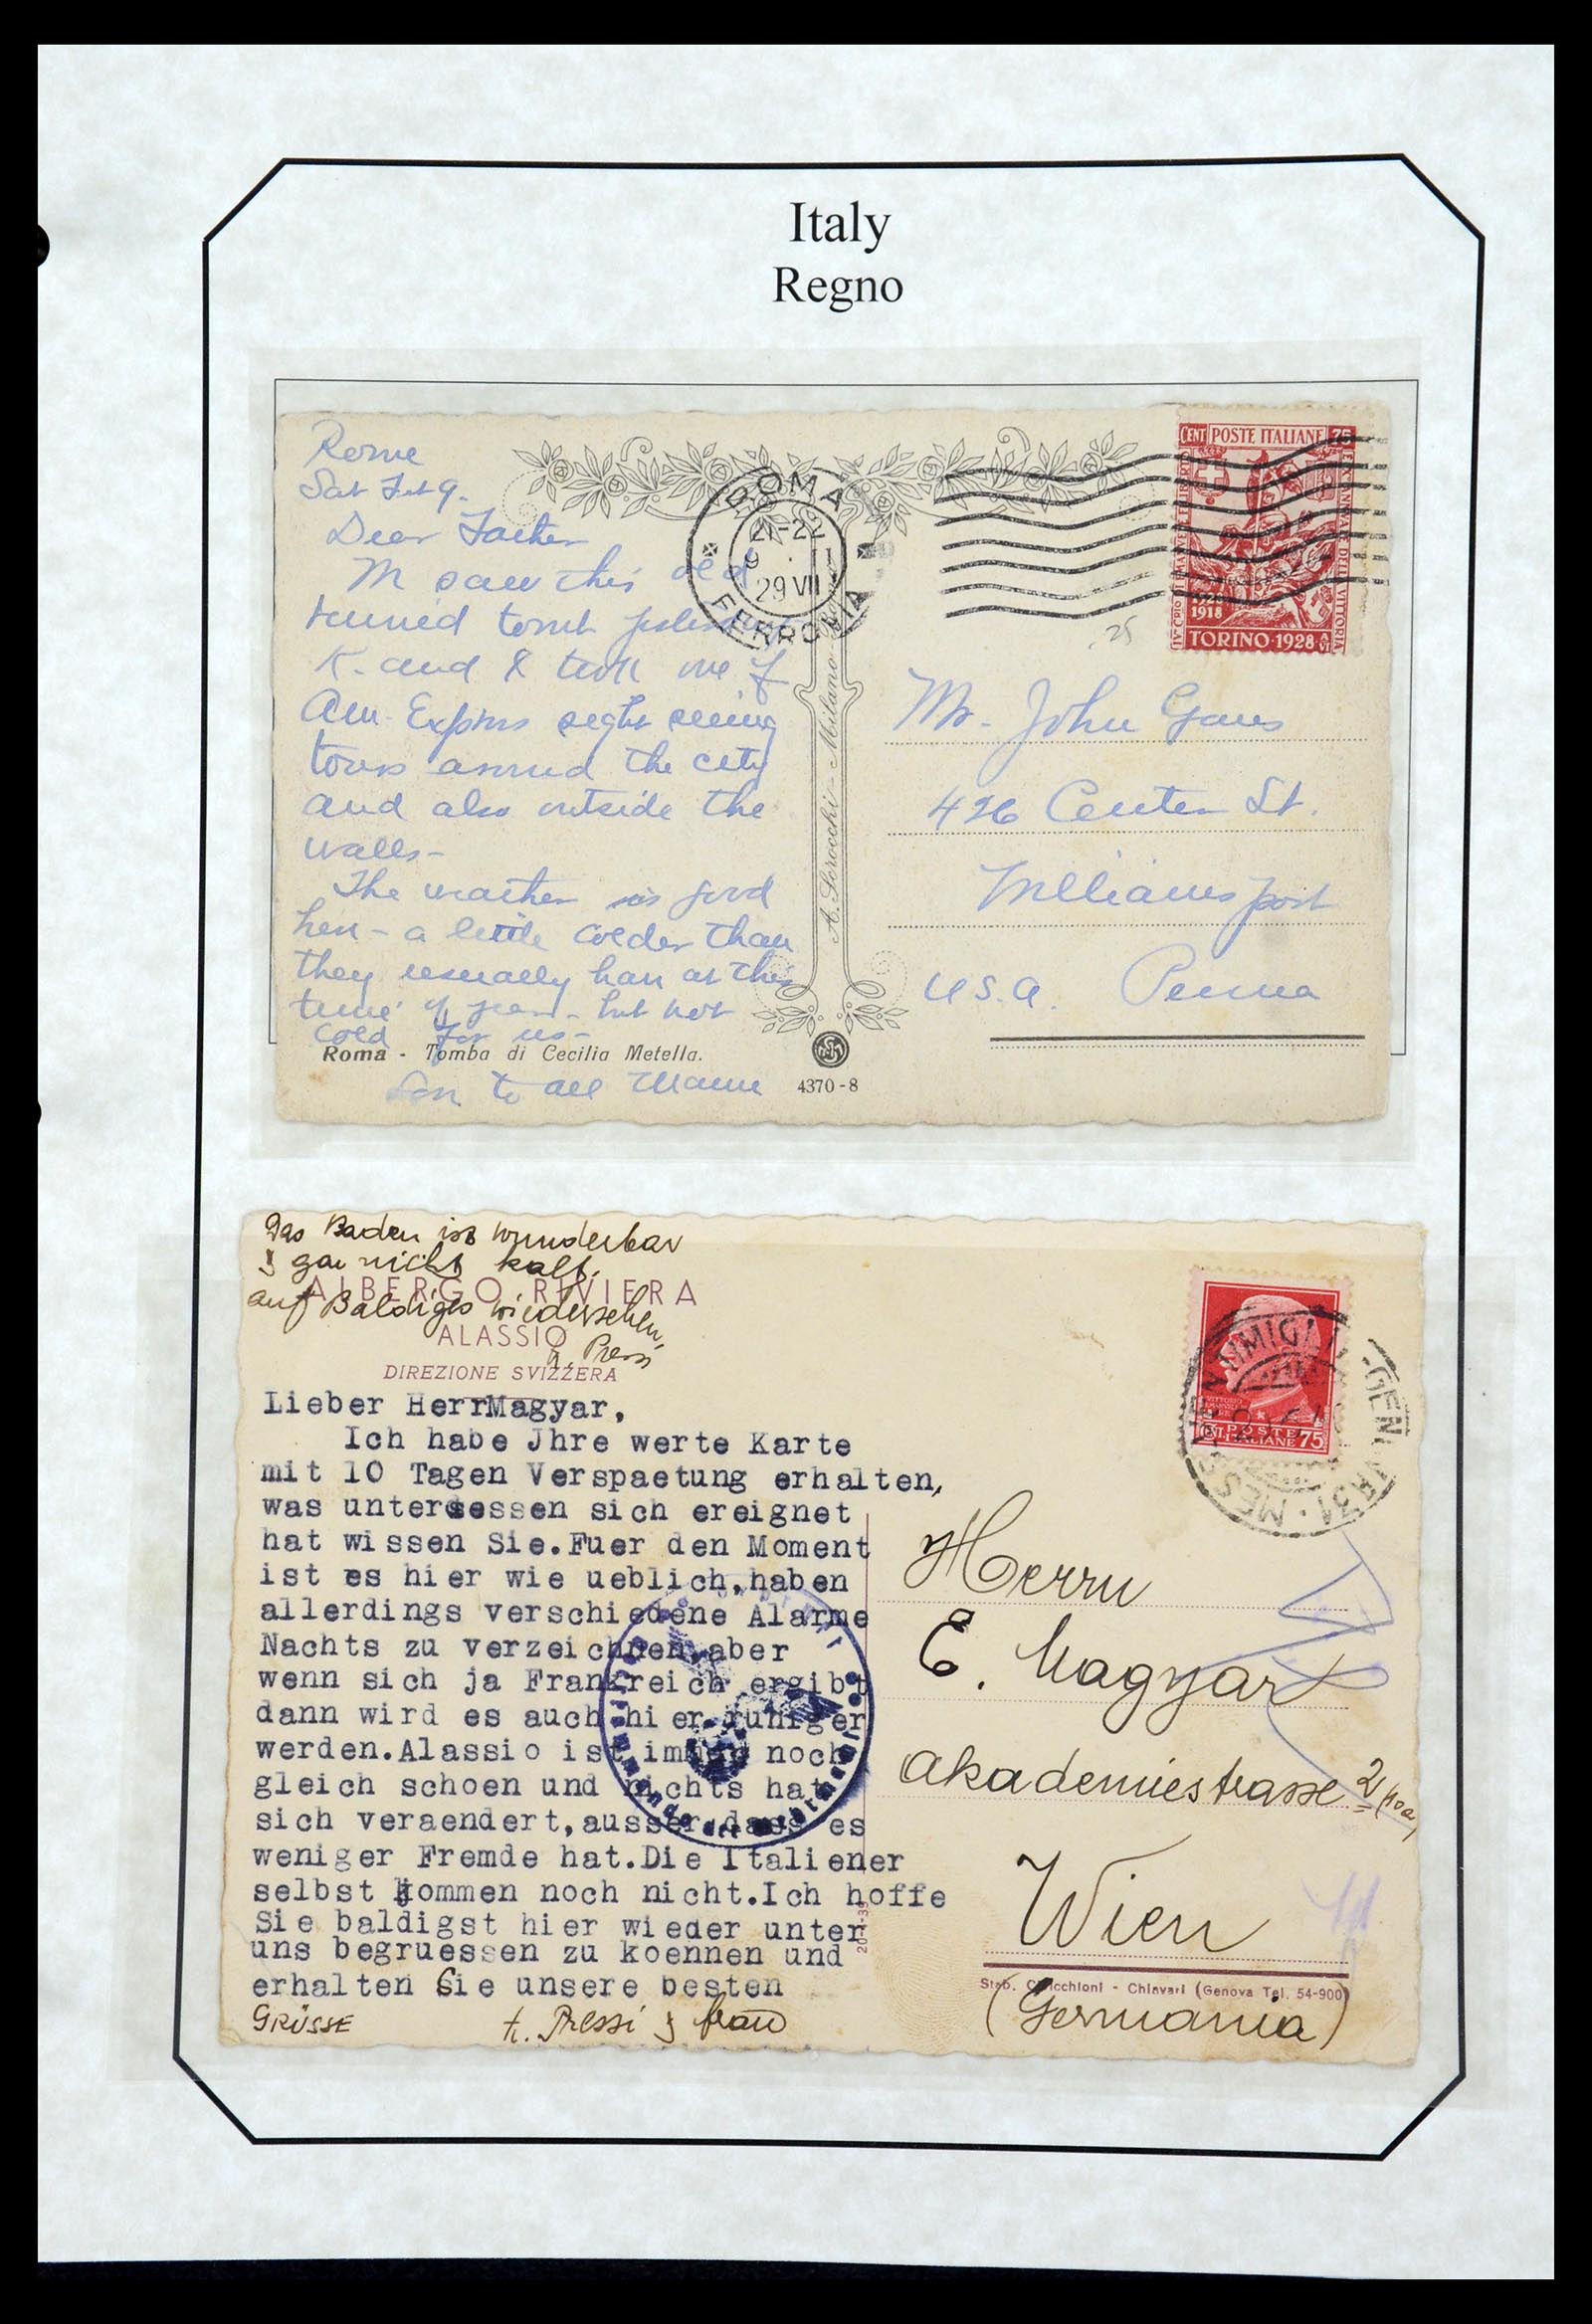 Italy
Regno
Rome
Sat Feb 9.
Dear Father
M saw this old
ruined tomb yesterday
K. and I took one of
Am. Express sight seeing
tours around the city
and also outside the
walls-
The weather is good
here - a little colder than
they usually have at this
time of year - but not
cold for us -
Roma - Tomba di Cecilia Metella.
to all Mame
4370-8
A. Scrocchi - Milano
ROMA
21-22
9 · II
29 VII
FERROVIA
CENT POSTE ITALIANE 75
1918
TORINO·1928 A VI
25
Mr. John Gans
426 Center St.
Williamsport
U.S.A. Penna
Das Baden ist wunderbar
& gar nicht kalt.
auf Baldiges wiedersehen,
ALBERGO RIVIERA
ALASSIO
DIREZIONE SVIZZERA
Lieber HerrMagyar,
Ich habe Jhre werte Karte
mit 10 Tagen Verspaetung erhalten,
was unterdessen sich ereignet
hat wissen Sie.Fuer den Moment
ist es hier wie ueblich,haben
allerdings verschiedene Alarme
Nachts zu verzeichnen,aber
wenn sich ja Frankreich ergibt
dann wird es auch hier ruhiger
werden.Alassio ist immer noch
gleich schoen und nichts hat
sich veraendert,ausser dass es
weniger Fremde hat.Die Italiener
selbst kommen noch nicht.Ich hoffe
Sie baldigst hier wieder unter
uns begruessen zu koennen und
erhalten Sie unsere besten
GRÜSSE
Pressi & frau
POSTE
ITALIANE 75
Herrn
E. Magyar
Akademiestrasse 2
Wien
Stab. Cicchioni - Chiavari (Genova Tel. 54-900)
(Germania)